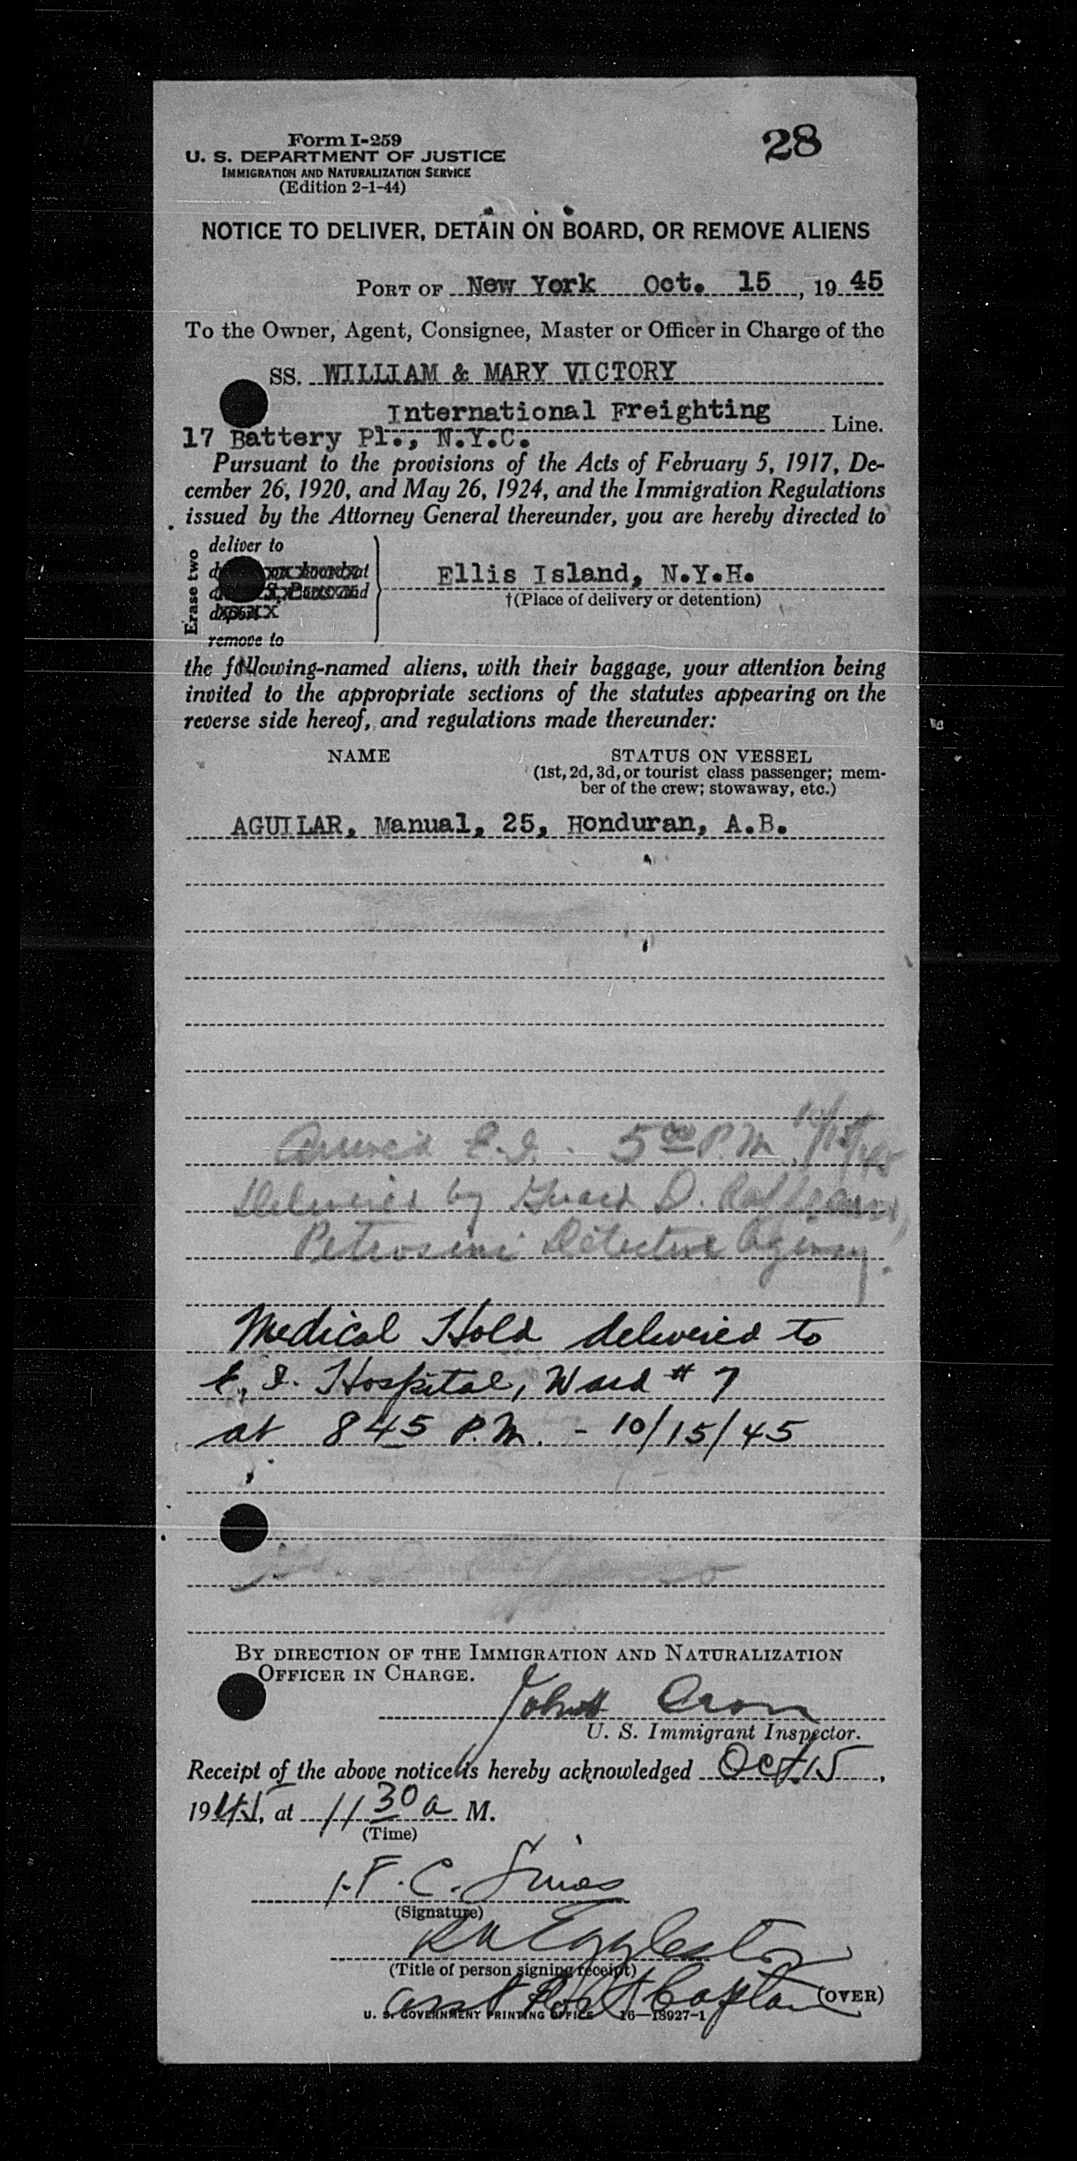 Form I-259
28
U. S. DEPARTMENT OF JUSTICE
IMMIGRATION AND NATURALIZATION SERVICE
(Edition 2-1-44)
NOTICE TO DELIVER, DETAIN ON BOARD, OR REMOVE ALIENS
PORT OF New York Oct. 15, 19 45
To the Owner, Agent, Consignee, Master or Officer in Charge of the
SS. WILLIAM & MARY VICTORY
International Freighting Line.
17 Battery Pl., N.Y.C.
Pursuant to the provisions of the Acts of February 5, 1917, De-
cember 26, 1920, and May 26, 1924, and the Immigration Regulations
issued by the Attorney General thereunder, you are hereby directed to
Erase two
deliver to
Ellis Island, N.Y.H.
†(Place of delivery or detention)
remove to
the following-named aliens, with their baggage, your attention being
invited to the appropriate sections of the statutes appearing on the
reverse side hereof, and regulations made thereunder:
NAME STATUS ON VESSEL
(1st, 2d, 3d, or tourist class passenger; mem-
ber of the crew; stowaway, etc.)
AGUILAR, Manual, 25, Honduran, A.B.
Arrived E.I. - 5 00 P.M. 10/15/45
Delivered by Guard D.
Petrosini Detective Agency.
Medical Hold delivered to
E. I. Hospital, Ward # 7
at 8 45 P.M. - 10/15/45
BY DIRECTION OF THE IMMIGRATION AND NATURALIZATION
OFFICER IN CHARGE.
John Aron
U. S. Immigrant Inspector.
Receipt of the above notice is hereby acknowledged Oct 15,
1945, at 11 30 a M.
(Time)
F. C.
(Signature)
Eggleston
(Title of person signing receipt)
asst Port Captain
(OVER)
U. S. GOVERNMENT PRINTING OFFICE 16-18927-1